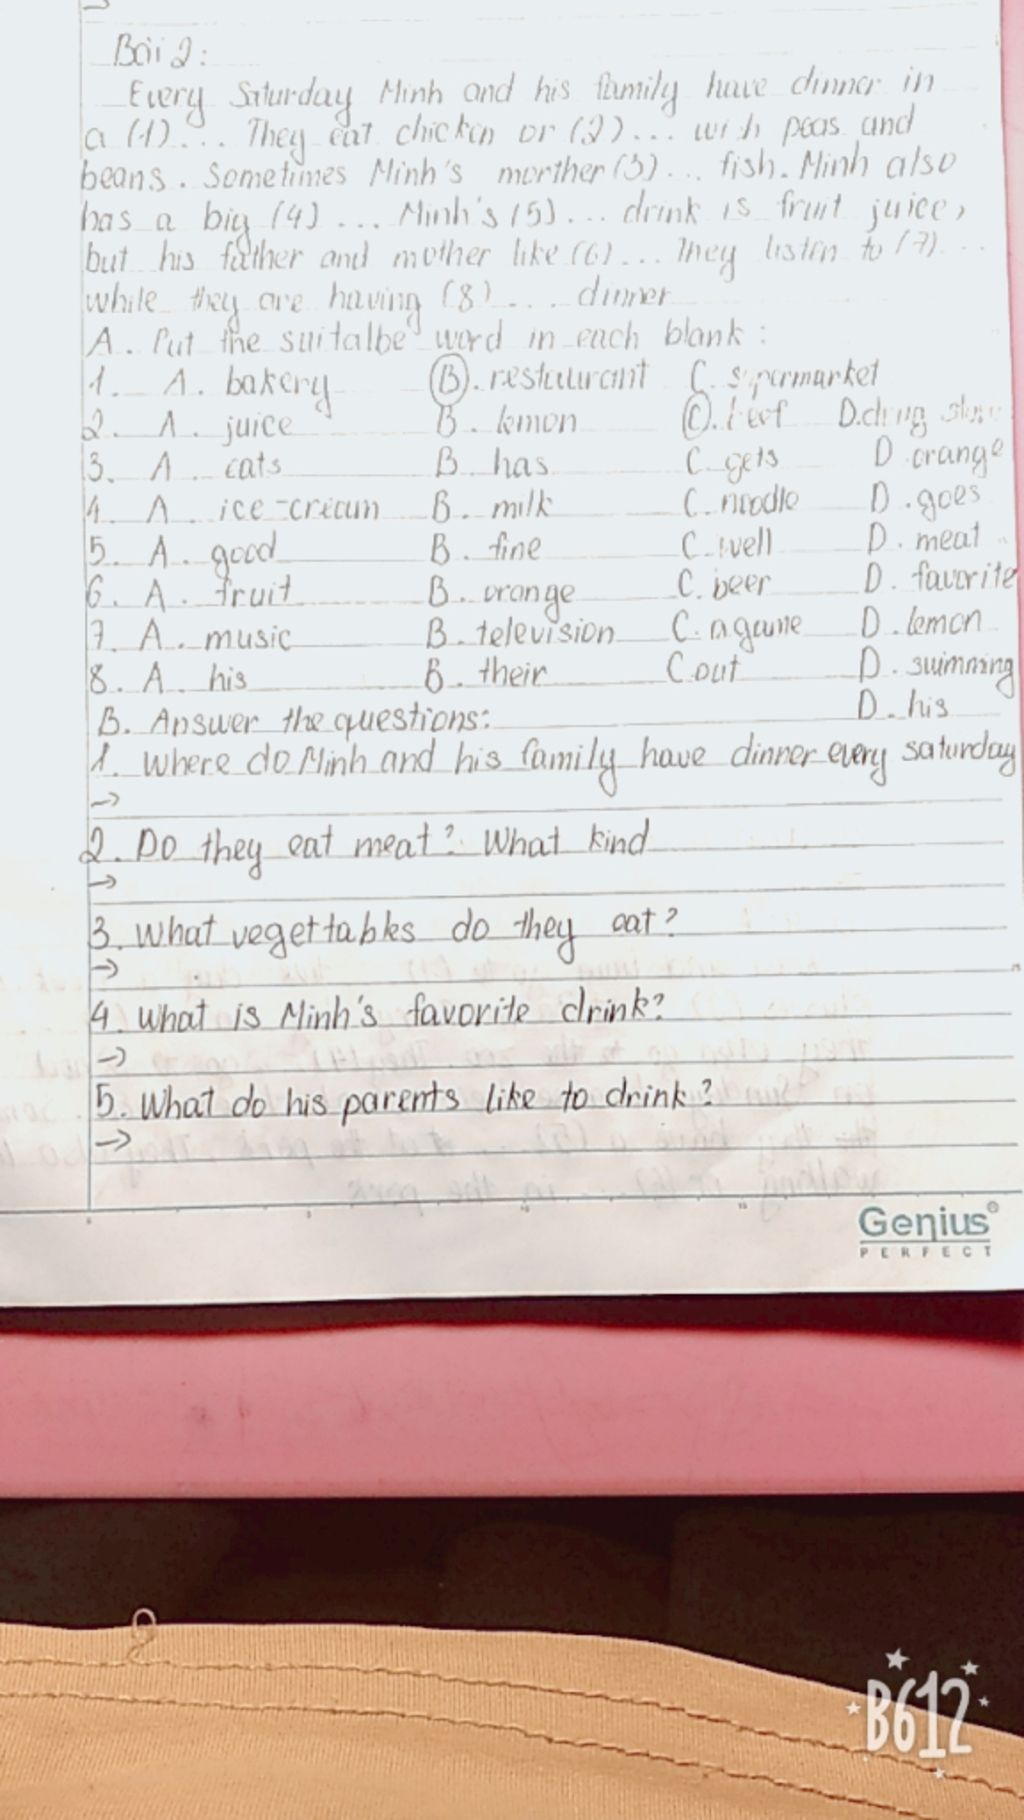 Bài 2:
Every Saturday Minh and his family have dinner in
a (1)... They eat chicken or (2)... with peas and
beans. Sometimes Minh's morther (3)... fish. Minh also
has a big (4) ... Minh's (5)... drink is fruit juice,
but his father and mother like (6)... They listen to (7)...
while they are having (8).... dinner
A. Put the suitalbe word in each blank:
1. A. bakery B. restaurant C. supermarket
2. A. juice B. lemon C. beef D. drug store
3. A. eats B. has C. gets D. orange
4. A. ice-cream B. milk C. noodle D. goes
5. A. good B. fine C. well D. meat
6. A. fruit B. orange C. beer D. favorite
7. A. music B. television C. a game D. lemon
8. A. his B. their C. out D. swimming
B. Answer the questions: D. his
1. Where do Minh and his family have dinner every saturday
→
2. Do they eat meat? What kind
→
3. What vegettables do they eat?
→
4. What is Minh's favorite drink?
→
5. What do his parents like to drink?
→
Genius®
PERFECT
B612